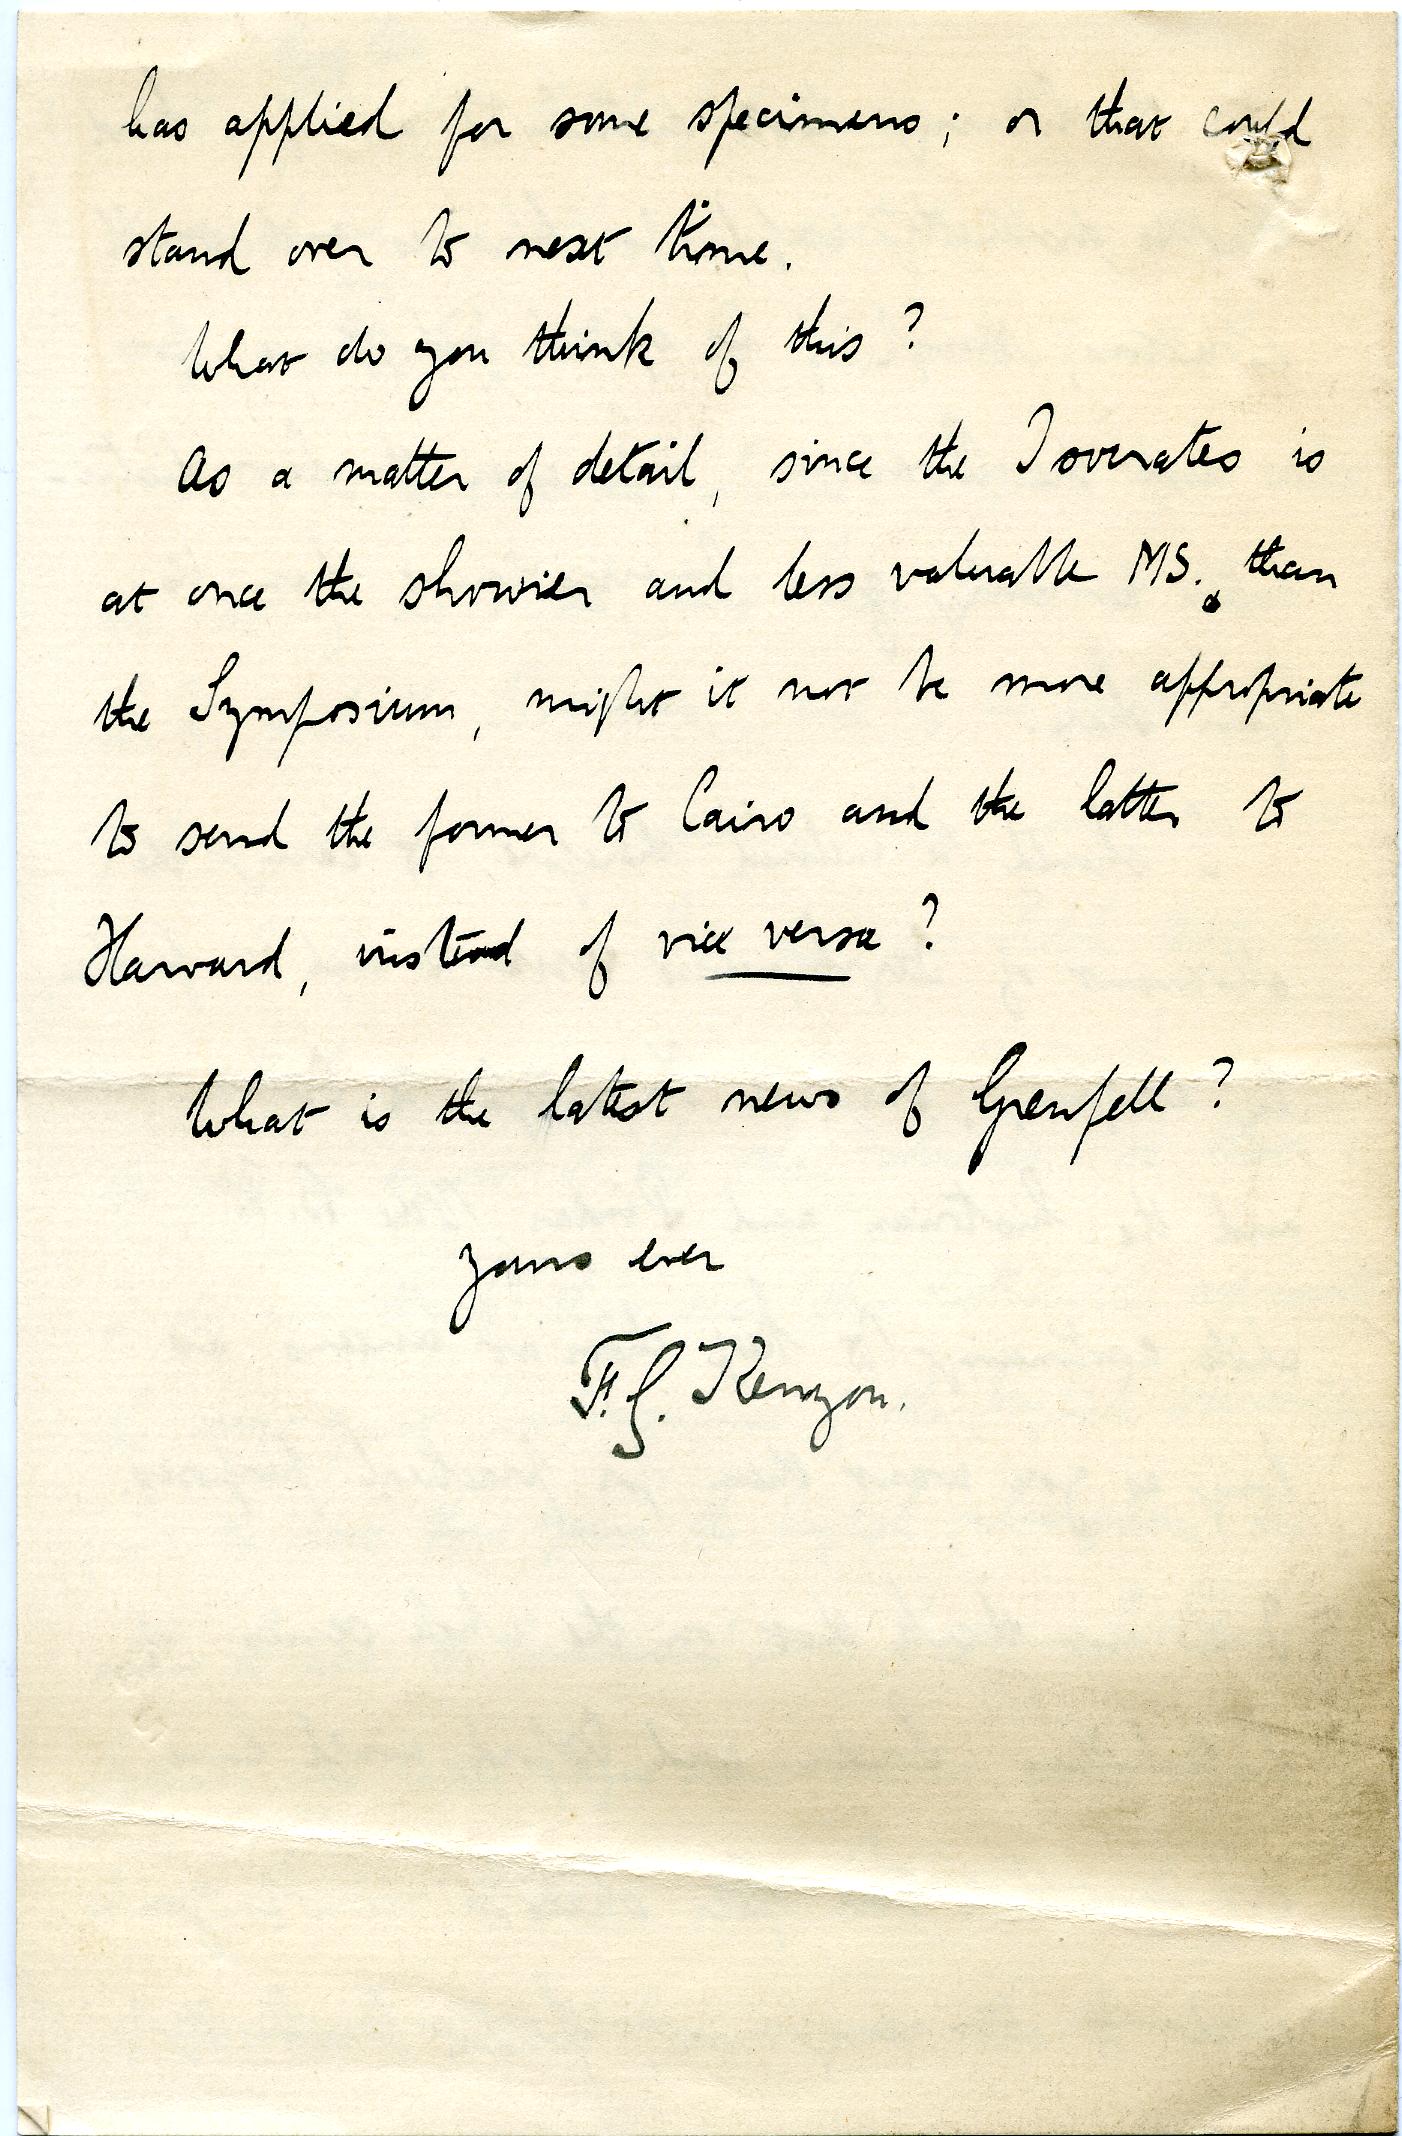 has applied for some specimens; or that could
stand over to next time.
What do you think of this?
As a matter of detail, since the Isocrates is
at once the showier and less valuable MS. than
the Symposium, might it not be more appropriate
to send the former to Cairo and the latter to
Harvard, instead of vice versa?
What is the latest news of Grenfell?
Yours ever
F. G. Kenyon.